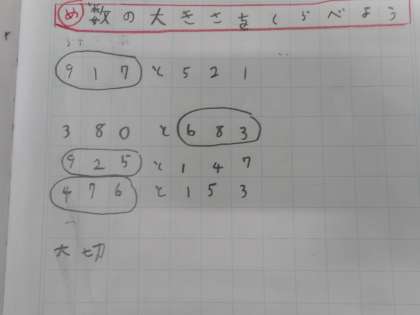 め 数の大きさをくらべよう
917と521
380と683
925と147
476と153
大切